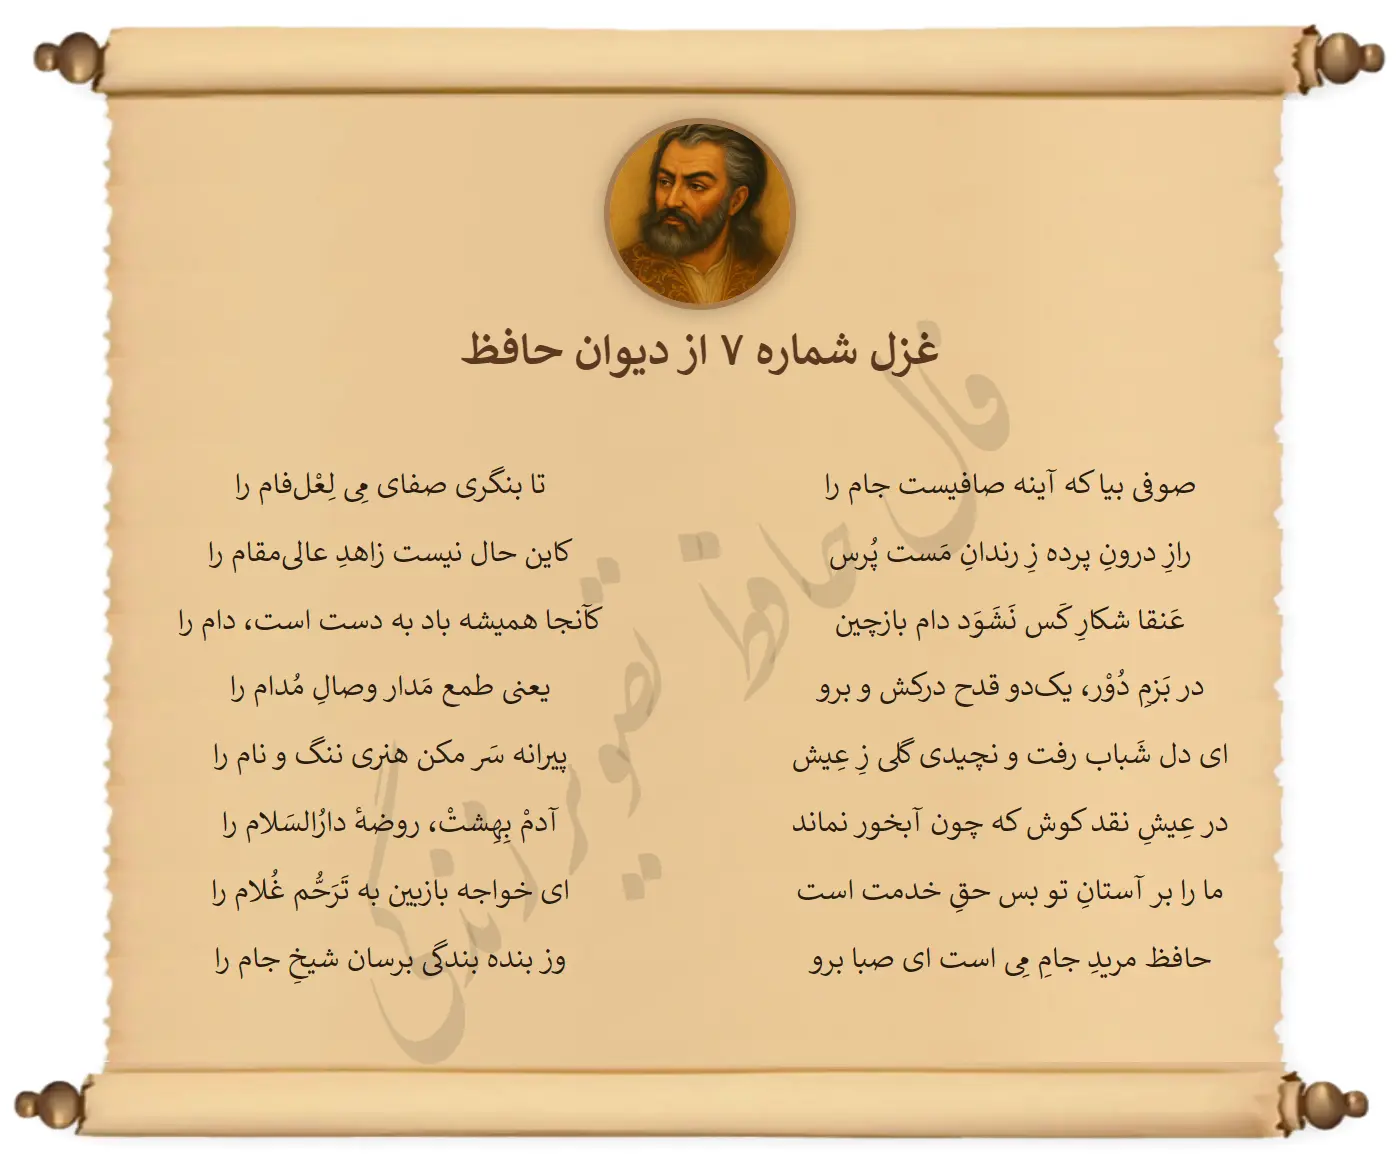 غزل شماره ۷ از دیوان حافظ
صوفی بیا که آینه صافیست جام را
تا بنگری صفای مِی لِعْل‌فام را
رازِ درونِ پرده زِ رندانِ مَست پُرس
کاین حال نیست زاهدِ عالی‌مقام را
عَنقا شکارِ کَس نَشَوَد دام بازچین
کآنجا همیشه باد به دست است، دام را
در بَزمِ دُوْر، یک‌دو قدح درکش و برو
یعنی طمع مَدار وصالِ مُدام را
ای دل شَباب رفت و نچیدی گلی زِ عِیش
پیرانه سَر مکن هنری ننگ و نام را
در عِیشِ نقد کوش که چون آبخور نماند
آدمْ بِهِشتْ، روضهٔ دارُالسَلام را
ما را بر آستانِ تو بس حقِ خدمت است
ای خواجه بازبین به تَرَحُّم غُلام را
حافظ مریدِ جامِ مِی است ای صبا برو
وز بنده بندگی برسان شیخِ جام را
فال حافظ تصویر زندگی